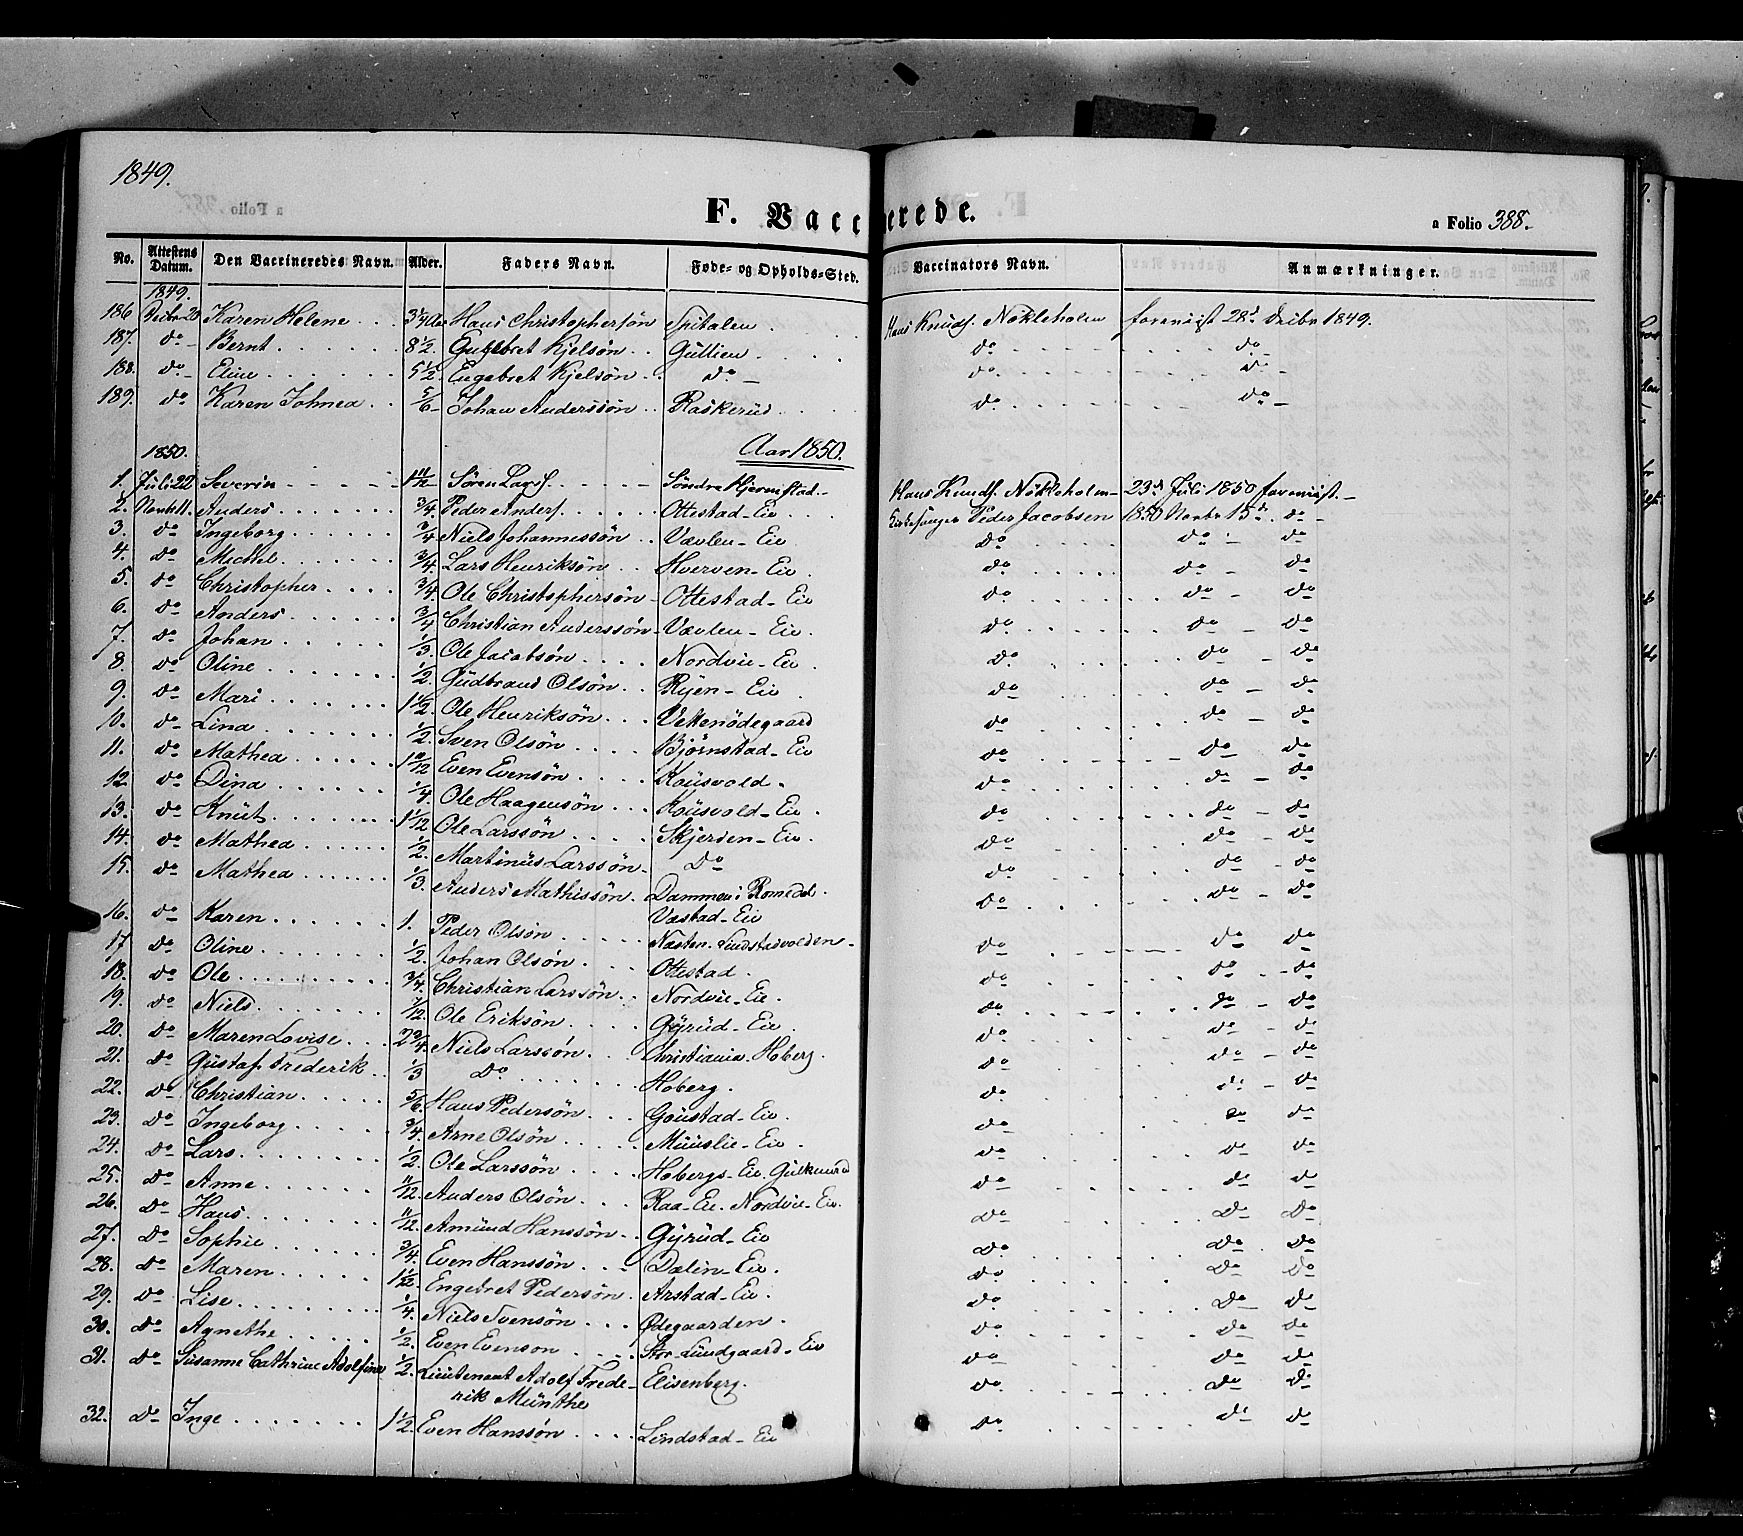 1849.
F. Vaccinerede.
a Folio 388.
No. Attestens Datum. Den Vaccineredes Navn. Alder. Faders Navn. Føde- og Opholds-Sted. Vaccinators Navn. Anmærkninger.
1849.
186 Decbr 20 Karen Helene 3 3/4 Aar Hans Christophersøn Spitalen. Hans Knuds. Nökleholm forevist 28d Decbr 1849.
187. do Bernt 8 1/2 Engebret Kjelsøn Gullien do do
188. do Eline 5 1/2 Engebret Kjelsøn do do do
189. do Karen Johnea 5/6 Johan Anderssøn Raskerud do do
1850. Aar 1850.
1. Juli 22 Severin 1 11/12 Søren Lars. Søndre Hjermstad Hans Knuds. Nökleholm 23d Juli 1850 forevist.
2. Novb 11. Anders 3/4 Peder Anders. Ottestad-Eie Kirkesanger Peder Jacobsen 1850 Novbr 15d do
3. do Ingeborg 3/4 Niels Johannessøn Vævlen-Eie do do do
4. do Michel 3/4 Lars Henriksøn Hverven-Eie do do do
5. do Christopher 3/4 Ole Christophersøn Ottestad-Eie do do do
6. do Anders 3/4 Christian Anderssøn Vævlen-Eie. do do do
7. do Johan 1/3 Ole Jacobsøn Nordvie-Eie do do do
8. do Oline 1/2 Gudbrand Olsøn Ryen-Eie do do do
9. do Mari 1 1/2 Ole Henriksøn Vettenødegaard do do do
10. do Lina 1/2 Sven Olsøn Bjørnstad-Eie do do do
11. do Mathea 1 10/12 Even Evensøn Kousvold do do do
12. do Dina 1/4 Ole Haagensøn Kousvold-Eie do do do
13. do Knut 1 1/12 Ole Larssøn Skjerden-Eie. do do do
14. do Mathea 1/2 Martinus Larssøn Do do do do
15. do Mathea 1/3 Anders Mathissøn Dammen i Romedal. do do do
16. do Karen 1. Peder Olsøn Væstad-Eie do do do
17 do Oline 1/2 Johan Olsøn Næsten. Lundstadvolden do do do
18. do Ole 3/4 Christian Larssøn Ottestad. do do do
19. do Niels 7/12 Ole Eriksøn Nordvie-Eie. do do do
20. Do Maren Lovise 2 3/4 Niels Larssøn Gyrud-Eie. do do do
21. do Gustaf Frederik 1/3 Do Christiania. Hoberg. do do do
22. do Christian 5/6 Hans Pedersøn Hoberg. do do do
23. Do Ingeborg 3/4 Arne Olsøn Goustad-Eie. do do do
24. do Lars 1/2 Ole Larssøn Muuslie-Eie do do do
25. Do Anne 11/12 Anders Olsøn Hobergs-Eie. do do do
26. Do Hans 11/12 Amund Hanssøn Raa-Eie. Nordvie-Eie. Do do do
27. Do Sophie 3/4 Even Hanssøn Gyrud-Eie Do do do
28. Do Maren 1 1/12 Engebret Pedersøn Dælin-Eie. do do do
29. Do Lise 1/4 Niels Svensøn Arstad-Eie. do do do
30. Do Agnethe 1/2 Even Evensøn Ødegaarden. do do do
31. Do Susanne Cathrine Adolfine 1/2 Lieutenant Adolf Frede- Stor-Lundgaard-Eie do do do
rik Münthe Elisenberg. do do do
32. Do Inge 1 1/2 Even Hanssøn Lundstad-Eie do do do